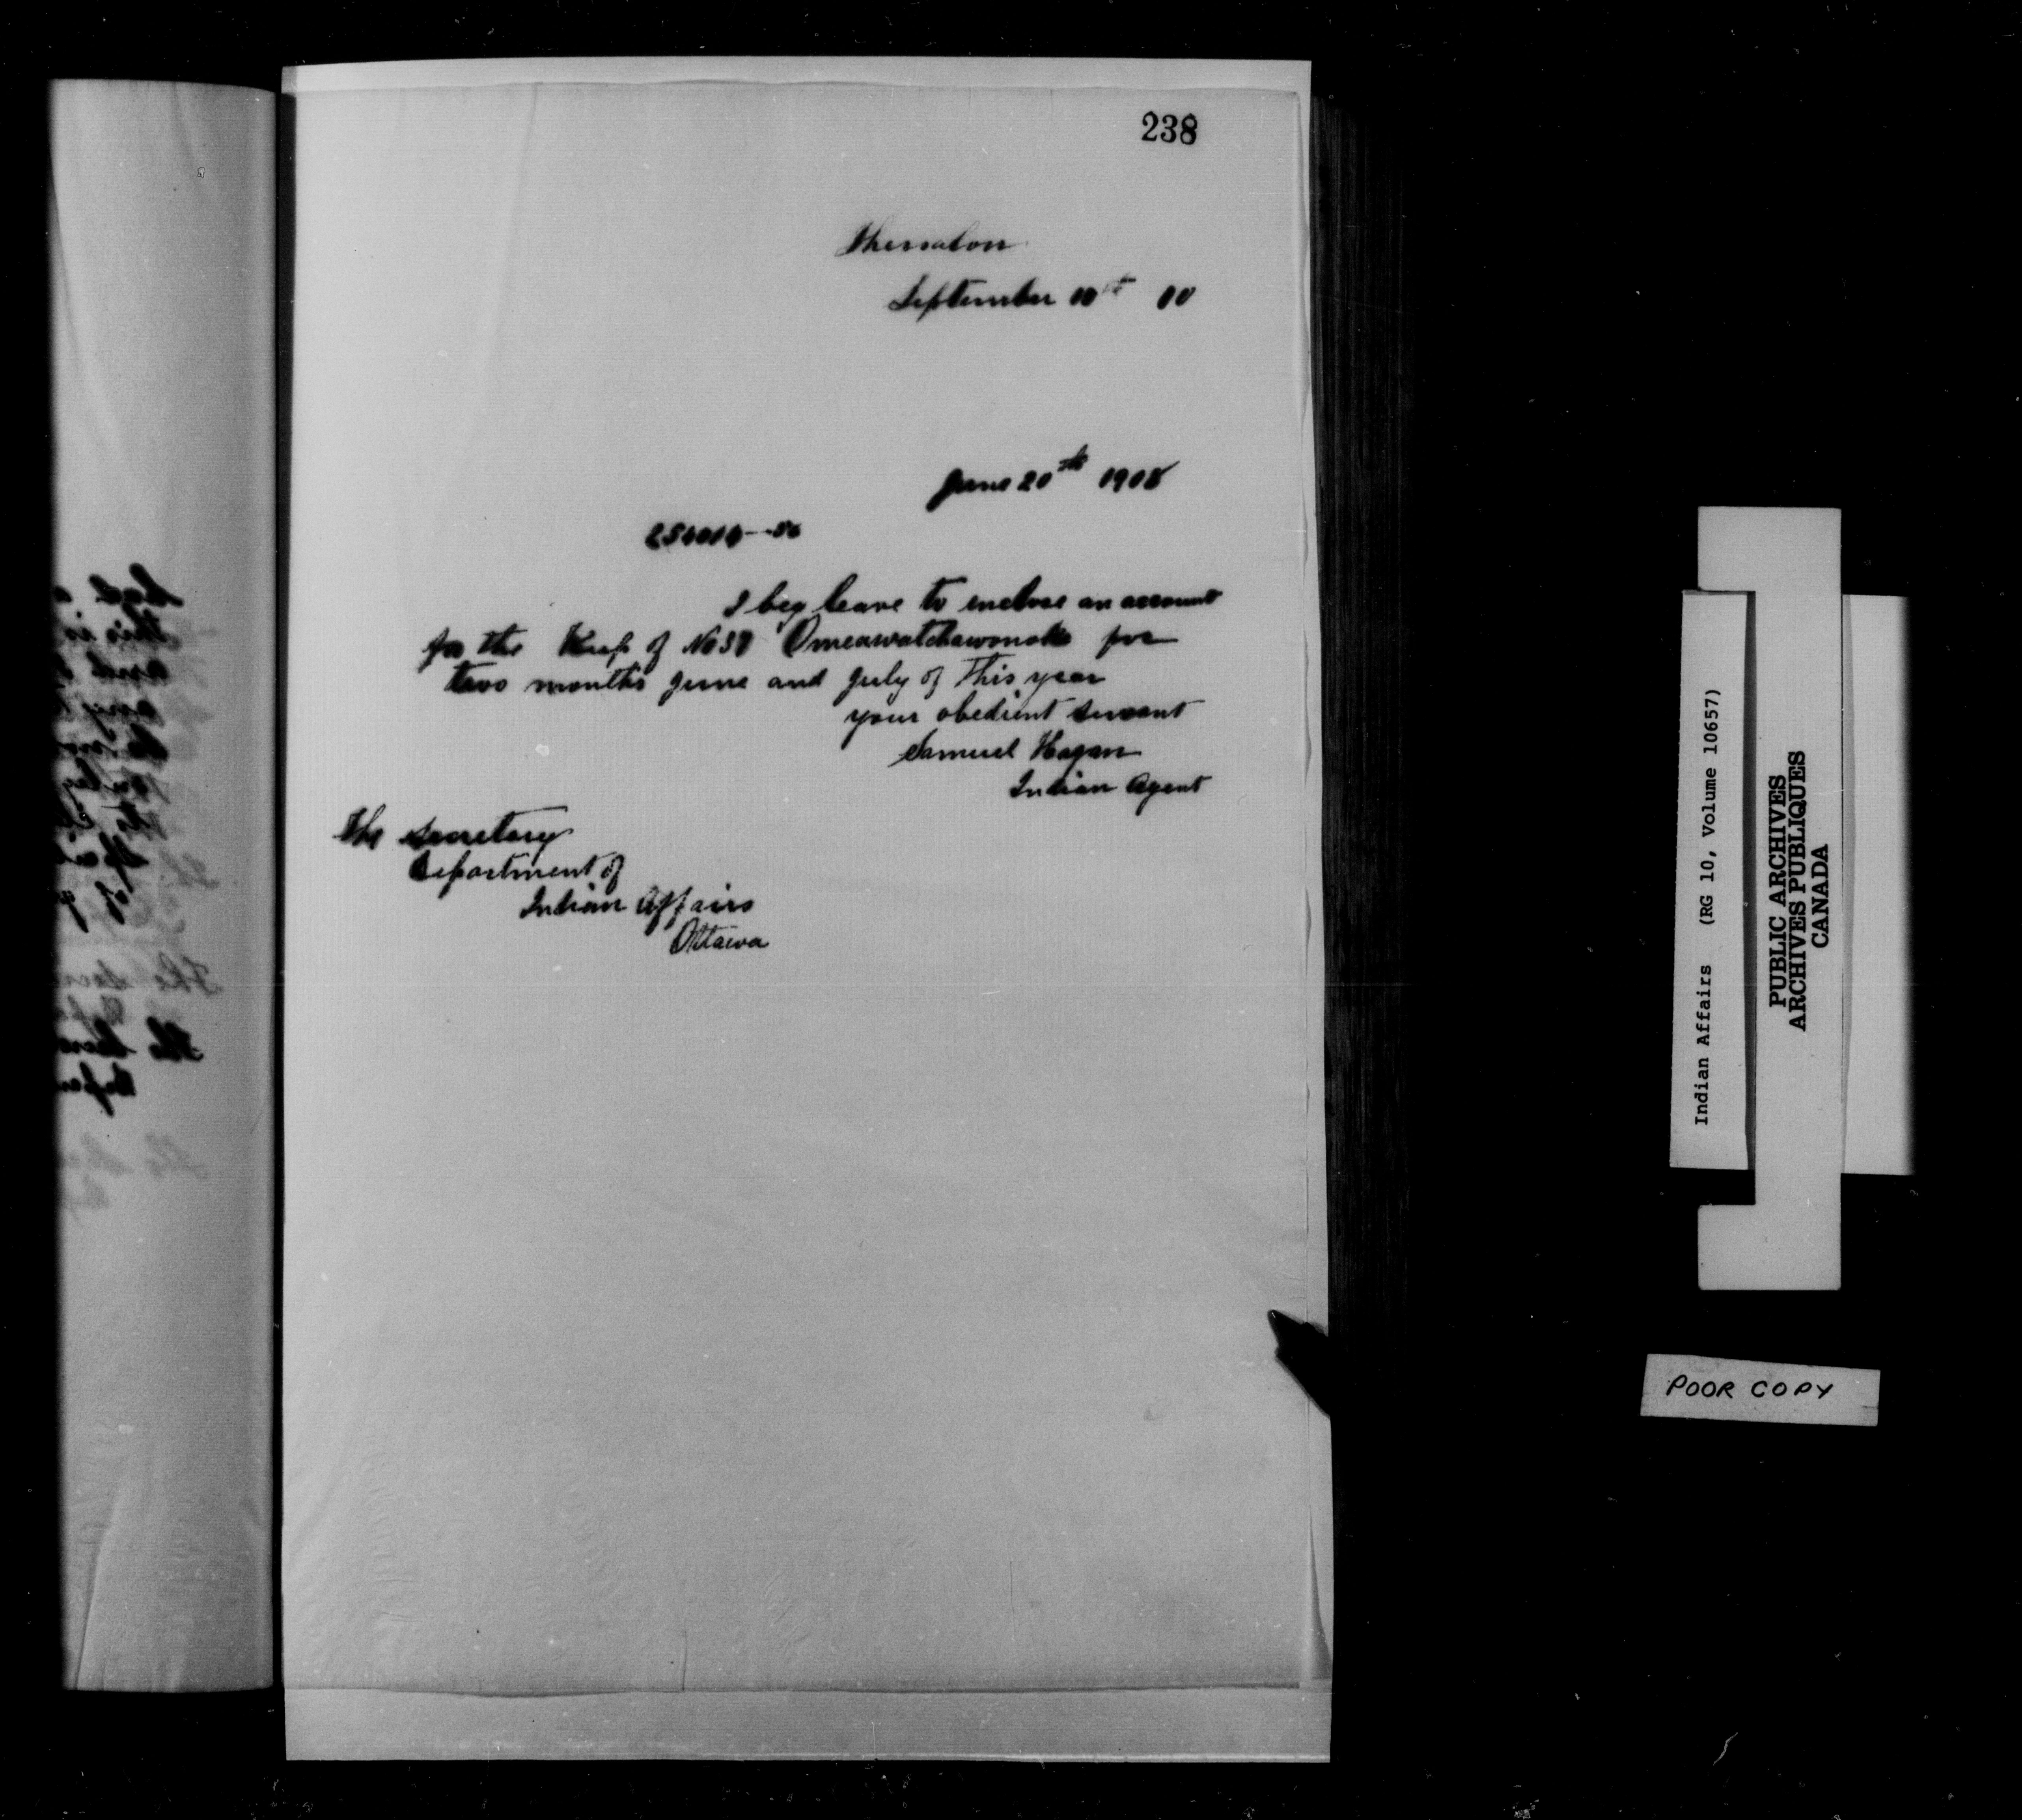 238
Thessalon
September 10th 10
June 20th 1908
I beg leave to enclose an account
for the Keep of No 37 Omeawatchawonoka for
two months June and July of this year
your obedient servant
Samuel Hagan
Indian Agent
The Secretary
Department of
Indian Affairs
Ottawa
Indian Affairs (RG 10, Volume 10657)
PUBLIC ARCHIVES
ARCHIVES PUBLIQUES
CANADA
POOR COPY